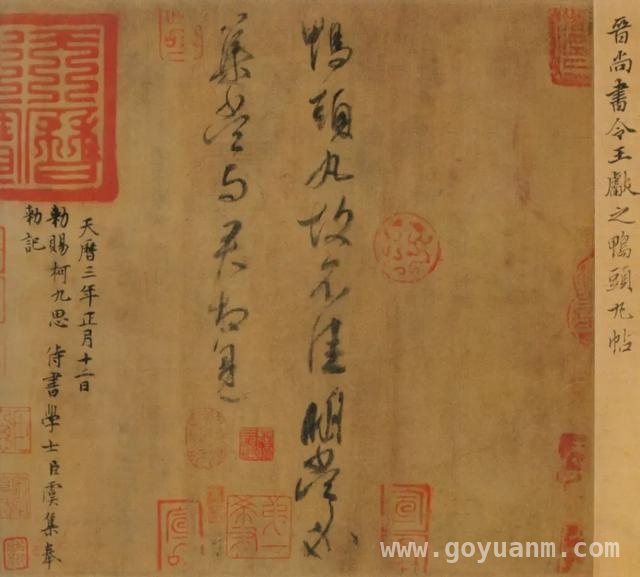 晉尚書令王獻之鴨頭丸帖
鴨頭丸故不佳明當必
集當與君相見
天曆三年正月十二日
勅賜柯九思 侍書學士臣虞集奉
勅記
www.goyuanm.com